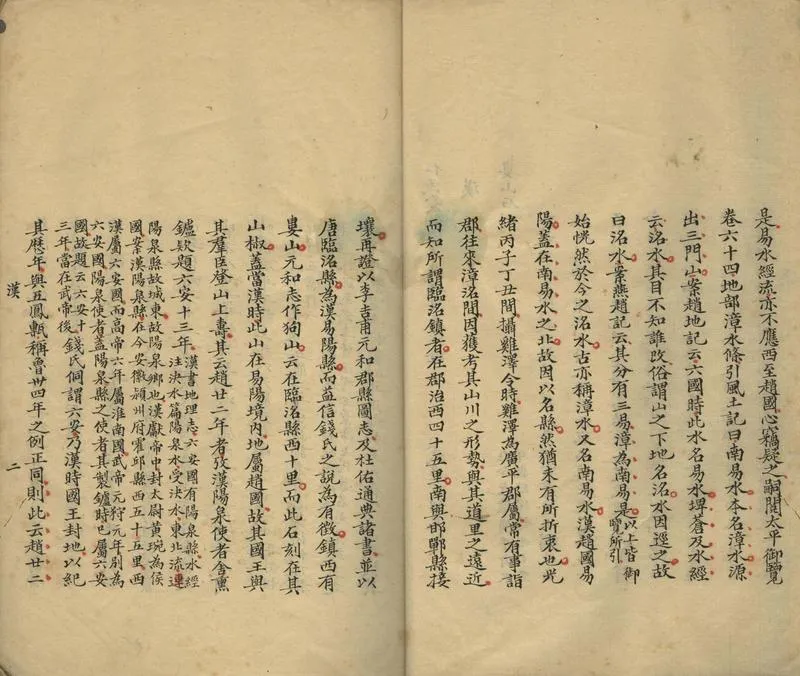 是易水經流亦不應西至趙國心竊疑之嗣閱太平御覽
卷六十四地部漳水條引風土記曰南易水本名漳水源
出三門山案趙地記云六國時此水名易水埤蒼及水經
云洺水其目不知誰改俗謂山之下地名洺水因逕之故
曰洺水案燕趙記云其分有三易漳為南易是以上皆御覽所引
始恍然於今之洺水古亦稱漳水又名南易水漢趙國易
陽蓋在南易水之北故因以名縣然猶未有所折衷也光
緒丙子丁丑間攝雞澤令時雞澤為廣平郡屬常有事詣
郡往來漳洺間因獲考其山川之形勢與其道里之遠近
而知所謂臨洺鎮者在郡治西四十五里南與邯鄲縣接
壤再證以李吉甫元和郡縣圖志及杜佑通典諸書並以
唐臨洺縣為漢易陽縣而益信錢氏之說為有徵鎮西有
婁山元和志作狗山云在臨洺縣西十里而此石刻在其
山椒蓋當漢時此山在易陽境内地屬趙國故其國王與
其羣臣登山上壽其云趙廿二年者攷漢陽泉使者舍熏
鑪欵題六安十三年漢書地理志六安國有陽泉縣水經
注決水篇陽泉水受決水東北流逕
陽泉縣故城東故陽泉鄉也漢獻帝中封太尉黃琬為侯
國案漢陽泉縣在今安徽潁州府霍邱縣西五十五里西
漢屬六安國而高帝六年屬淮南國武帝元狩元年別為
六安國陽泉使者蓋陽泉縣之使者其製鑪時已屬六安
國故題云六安十錢氏侗謂六安乃漢時國王封地以紀
三年當在武帝後
其歷年與五鳳甎稱魯卅四年之例正同則此云趙廿二
漢
二